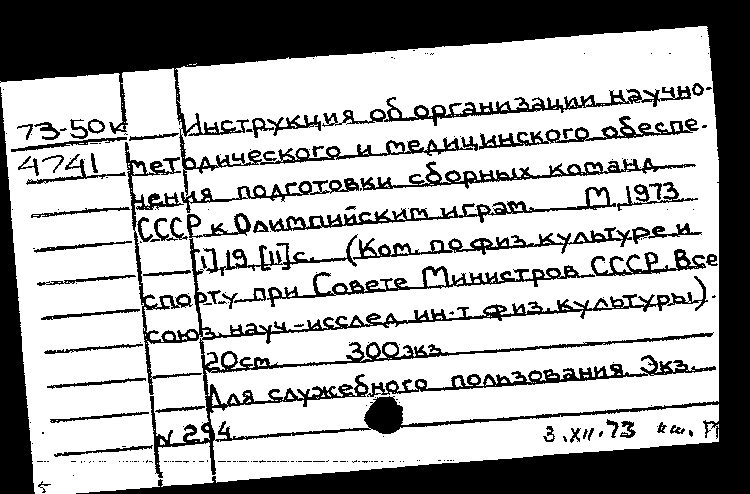 73-50к Инструкция об организации научно-
4741 методического и медицинского обеспе-
чения подготовки сборных команд
СССР к Олимпийским играм. М, 1973
[1], 19, [11] с. (Ком. по физ. культуре и
спорту при Совете Министров СССР. Все
союз. науч.-исслед. ин-т физ. культуры).
20 см. 300 экз.
Для служебного пользования. Экз.
N 294
3.XII.73